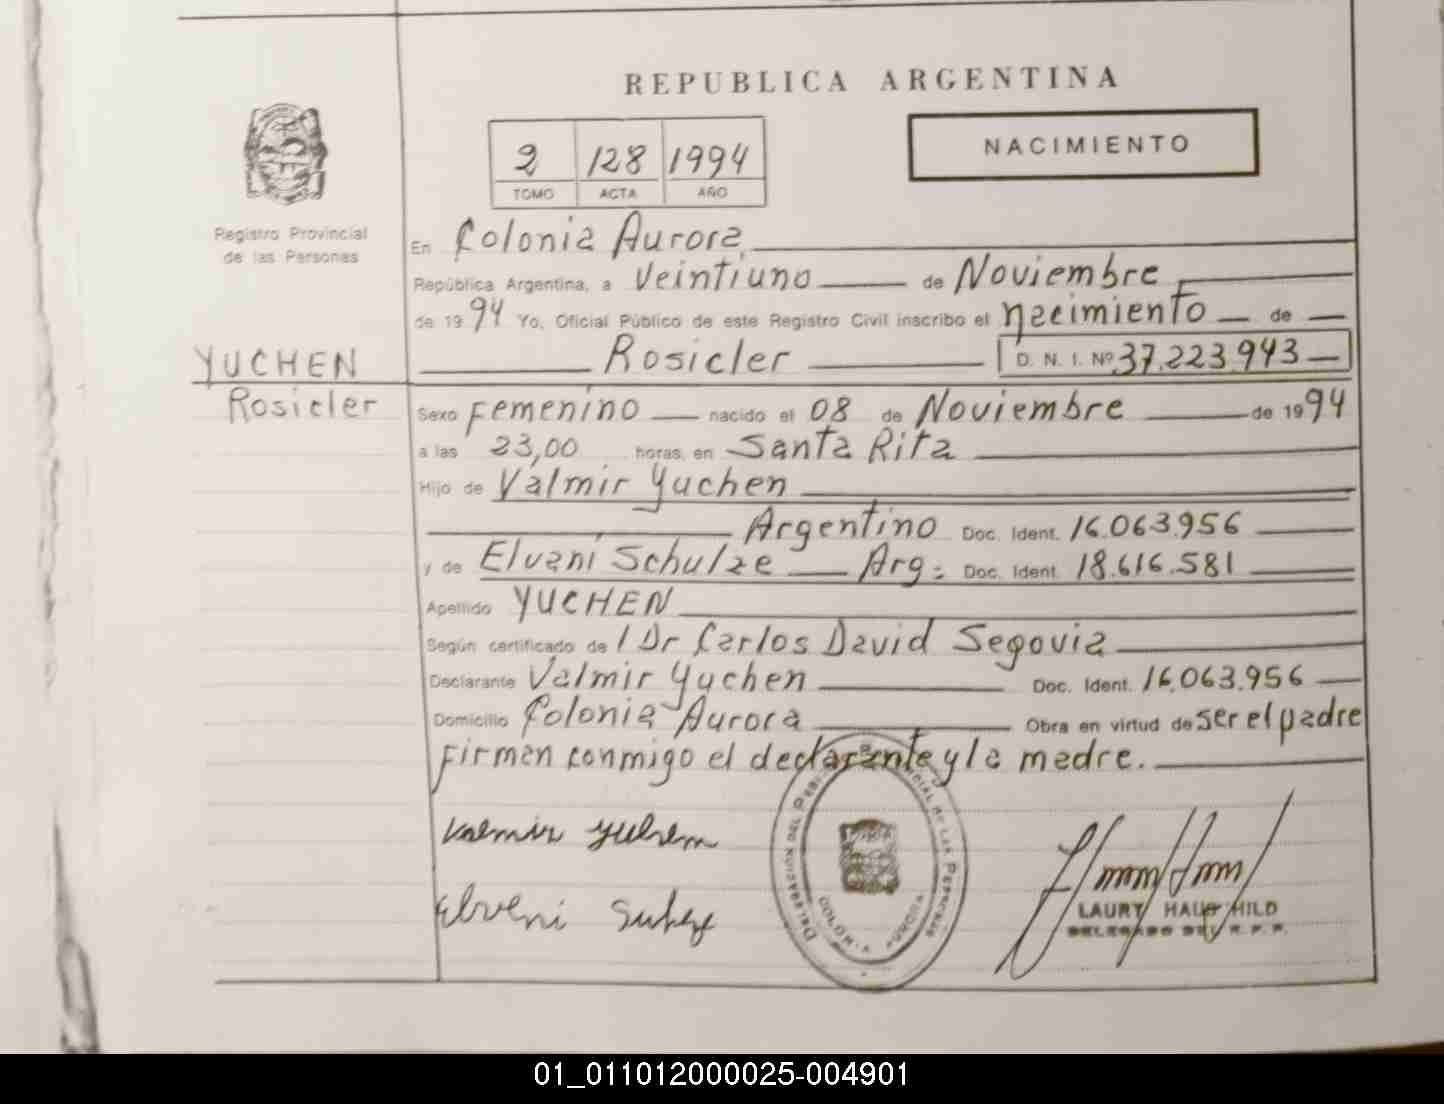 REPUBLICA ARGENTINA
NACIMIENTO
2 128 1994
TOMO ACTA AÑO
Registro Provincial
de las Personas
YUCHEN
Rosicler
En Colonia Aurora
República Argentina, a Veintiuno de Noviembre
de 1994 Yo, Oficial Público de este Registro Civil inscribo el nacimiento de
Rosicler D. N. I. Nº 37.223.943
Sexo Femenino nacido el 08 de Noviembre de 1994
a las 23,00 horas, en Santa Rita
Hijo de Valmir Yuchen
Argentino Doc. Ident. 16.063.956
y de Elvani Schulze Arg: Doc. Ident. 18.616.581
Apellido YUCHEN
Según certificado de / Dr Carlos David Segovia
Declarante Valmir Yuchen Doc. Ident. 16.063.956
Domicilio Colonia Aurora Obra en virtud de ser el padre
Firman conmigo el declarante y la madre.
Valmir Yuchem
Elveni
COLONIA AURORA
LAURY HAUSCHILD
DELEGADO DEL R. P. P.
01_011012000025-004901